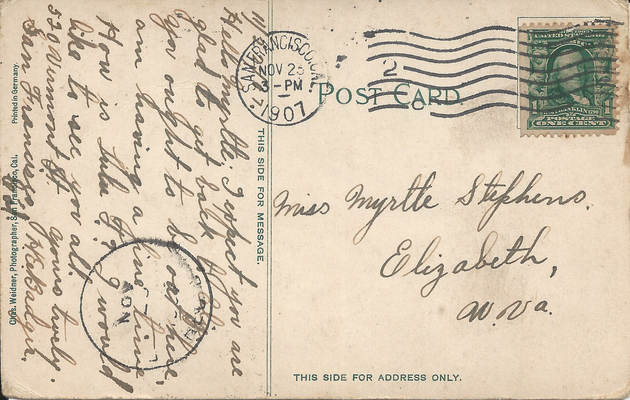 Hello Myrtle I expect you are
glad to get back
Ya ought to be out here,
am having a fine time
How is Lulu ? I would
like to see you all
520 Vermont St. Yours truly.
San Francisco,
Chas. Weidner, Photographer, San Francisco, Cal. Printed in Germany.
THIS SIDE FOR MESSAGE.
SAN FRANCISCO, CAL.
NOV 23
3-PM
1907
2
POST CARD
FRANKLIN
POSTAGE
ONE CENT
Miss Myrtle Stephens.
Elizabeth,
W. Va.
NOV
THIS SIDE FOR ADDRESS ONLY.